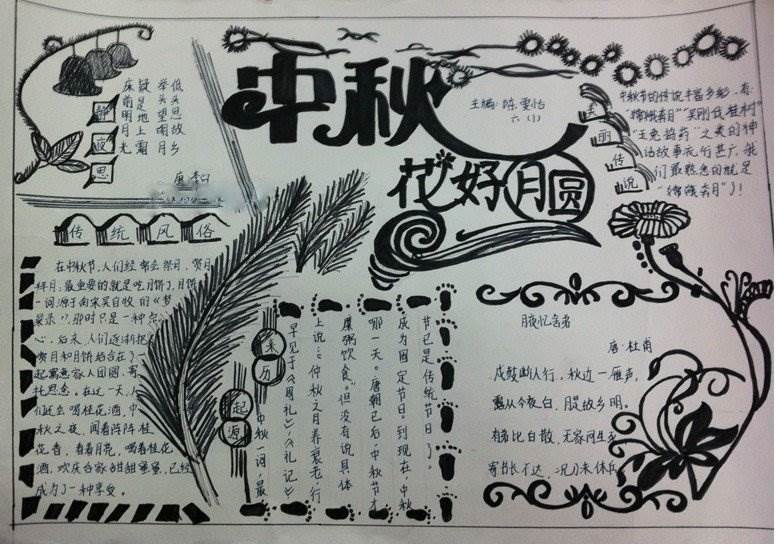 中秋
花好月圆
主编:陈雯怡
六(1)
静夜思
床前明月光
疑是地上霜
举头望明月
低头思故乡
唐·李白
传统风俗
在中秋节,人们经常会祭月、赏月
拜月,最重要的就是吃月饼了,月饼
一词源于南宋吴自牧的《梦
那时只是一种点
心,后来,人们逐渐把
赏月和月饼结合在了一
起寓意家人团圆,寄
托思念。在这一天,人
们还会喝桂花酒,中
秋之夜,闻着阵阵桂
花香,看着月亮,喝着桂花
酒,欢庆合家甜甜蜜蜜,已经
成为了一种享受。
美丽传说
中秋节的传说丰富多彩,有:
“嫦娥奔月”“吴刚伐桂树”
“玉兔捣药”之类的神
话故事流行甚广,我
们最熟悉的就是
“嫦娥奔月”了!
起源
来历
中秋一词,最
早见于《周礼》。《礼记》
上说:“仲秋之月养衰老,行
糜粥饮食。”但没有说具体
哪一天。唐朝已后中秋节才
成为固定节日。到现在,中秋
节已是传统节日了。
月夜忆舍弟
唐·杜甫
戍鼓断人行,秋边一雁声。
露从今夜白,月是故乡明。
有弟皆分散,无家问生死
寄书长不达,况乃未休兵。